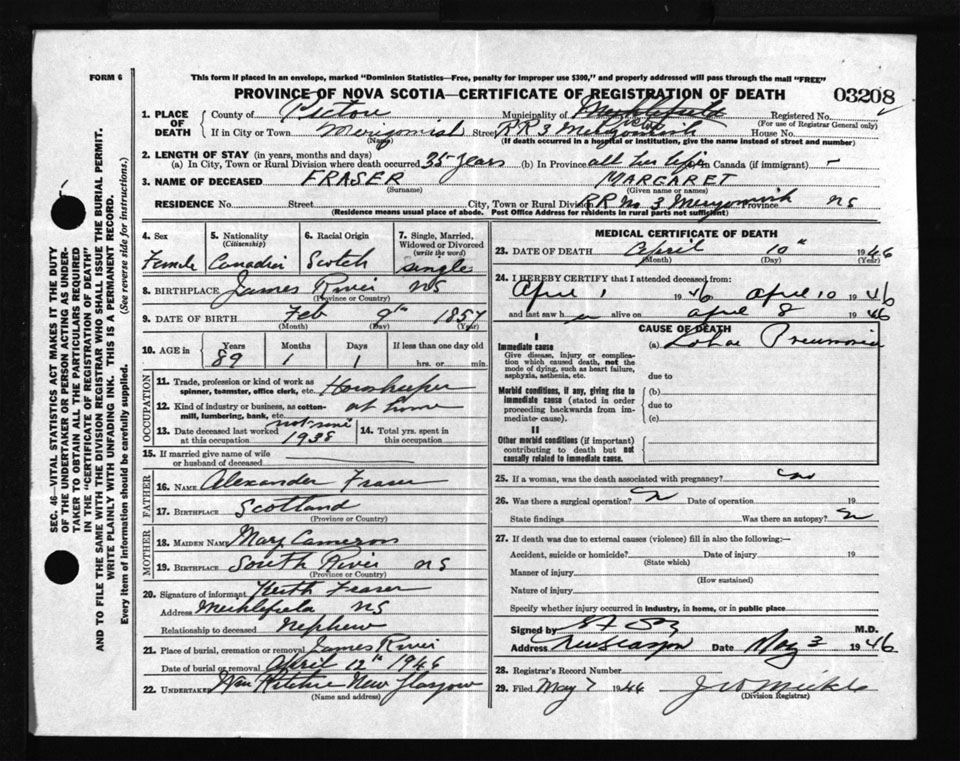 FORM 6
This form if placed in an envelope, marked "Dominion Statistics—Free, penalty for improper use $300," and properly addressed will pass through the mail "FREE"
PROVINCE OF NOVA SCOTIA—CERTIFICATE OF REGISTRATION OF DEATH
03208
1. PLACE OF DEATH
County of Pictou Municipality of Registered No.
(For use of Registrar General only)
If in City or Town Merigomish Street RR 3 Merigomish House No.
(Name) (If death occurred in a hospital or institution, give the name instead of street and number)
2. LENGTH OF STAY (in years, months and days)
(a) In City, Town or Rural Division where death occurred 35 years (b) In Province all her life In Canada (if immigrant) —
3. NAME OF DECEASED FRASER MARGARET
(Surname) (Given name or names)
RESIDENCE No. Street City, Town or Rural Division RR No 3 Merigomish Province NS
(Residence means usual place of abode. Post Office Address for residents in rural parts not sufficient)
4. Sex Female
5. Nationality (Citizenship) Canadian
6. Racial Origin Scotch
7. Single, Married, Widowed or Divorced (write the word) single
8. BIRTHPLACE James River NS
(Province or Country)
9. DATE OF BIRTH Feb 9th 1857
(Month) (Day) (Year)
10. AGE in Years Months Days If less than one day old
89 1 1 hrs. or min.
OCCUPATION
11. Trade, profession or kind of work as spinner, teamster, office clerk, etc. Housekeeper
12. Kind of industry or business, as cotton-mill, lumbering, bank, etc. at home
13. Date deceased last worked at this occupation 1938
14. Total yrs. spent in this occupation
15. If married give name of wife or husband of deceased
FATHER
16. Name Alexander Fraser
17. Birthplace Scotland
(Province or Country)
MOTHER
18. Maiden Name Mary Cameron
19. Birthplace South River NS
(Province or Country)
20. Signature of informant Keith Fraser
Address Meiklefield NS
Relationship to deceased Nephew
21. Place of burial, cremation or removal James River
Date of burial or removal April 12th 1946
22. Undertaker Wm Ritchie New Glasgow
(Name and address)
MEDICAL CERTIFICATE OF DEATH
23. DATE OF DEATH April 10th 1946
(Month) (Day) (Year)
24. I HEREBY CERTIFY that I attended deceased from:
April 1 1946 April 10 1946
and last saw her alive on April 8 1946
CAUSE OF DEATH
I
Immediate cause
Give disease, injury or complication which caused death, not the mode of dying, such as heart failure, asphyxia, asthenia, etc.
(a) Lobar Pneumonia
due to
Morbid conditions, if any, giving rise to immediate cause (stated in order proceeding backwards from immediate cause).
(b)
due to
(c)
II
Other morbid conditions (if important) contributing to death but not causally related to immediate cause.
25. If a woman, was the death associated with pregnancy? no
26. Was there a surgical operation? Date of operation 19
State findings Was there an autopsy?
27. If death was due to external causes (violence) fill in also the following:—
Accident, suicide or homicide? Date of injury 19
(State which)
Manner of injury
(How sustained)
Nature of injury
Specify whether injury occurred in industry, in home, or in public place
Signed by M.D.
Address New Glasgow Date May 3 1946
28. Registrar's Record Number
29. Filed May 7 1946
(Division Registrar)
SEC. 46—VITAL STATISTICS ACT MAKES IT THE DUTY
OF THE UNDERTAKER OR PERSON ACTING AS UNDER-
TAKER TO OBTAIN ALL THE PARTICULARS REQUIRED
IN THE "CERTIFICATE OF REGISTRATION OF DEATH"
AND TO FILE THE SAME WITH THE DIVISION REGISTRAR WHO SHALL ISSUE THE BURIAL PERMIT.
WRITE PLAINLY WITH UNFADING INK. THIS IS A PERMANENT RECORD.
Every item of information should be carefully supplied. (See reverse side for instructions.)